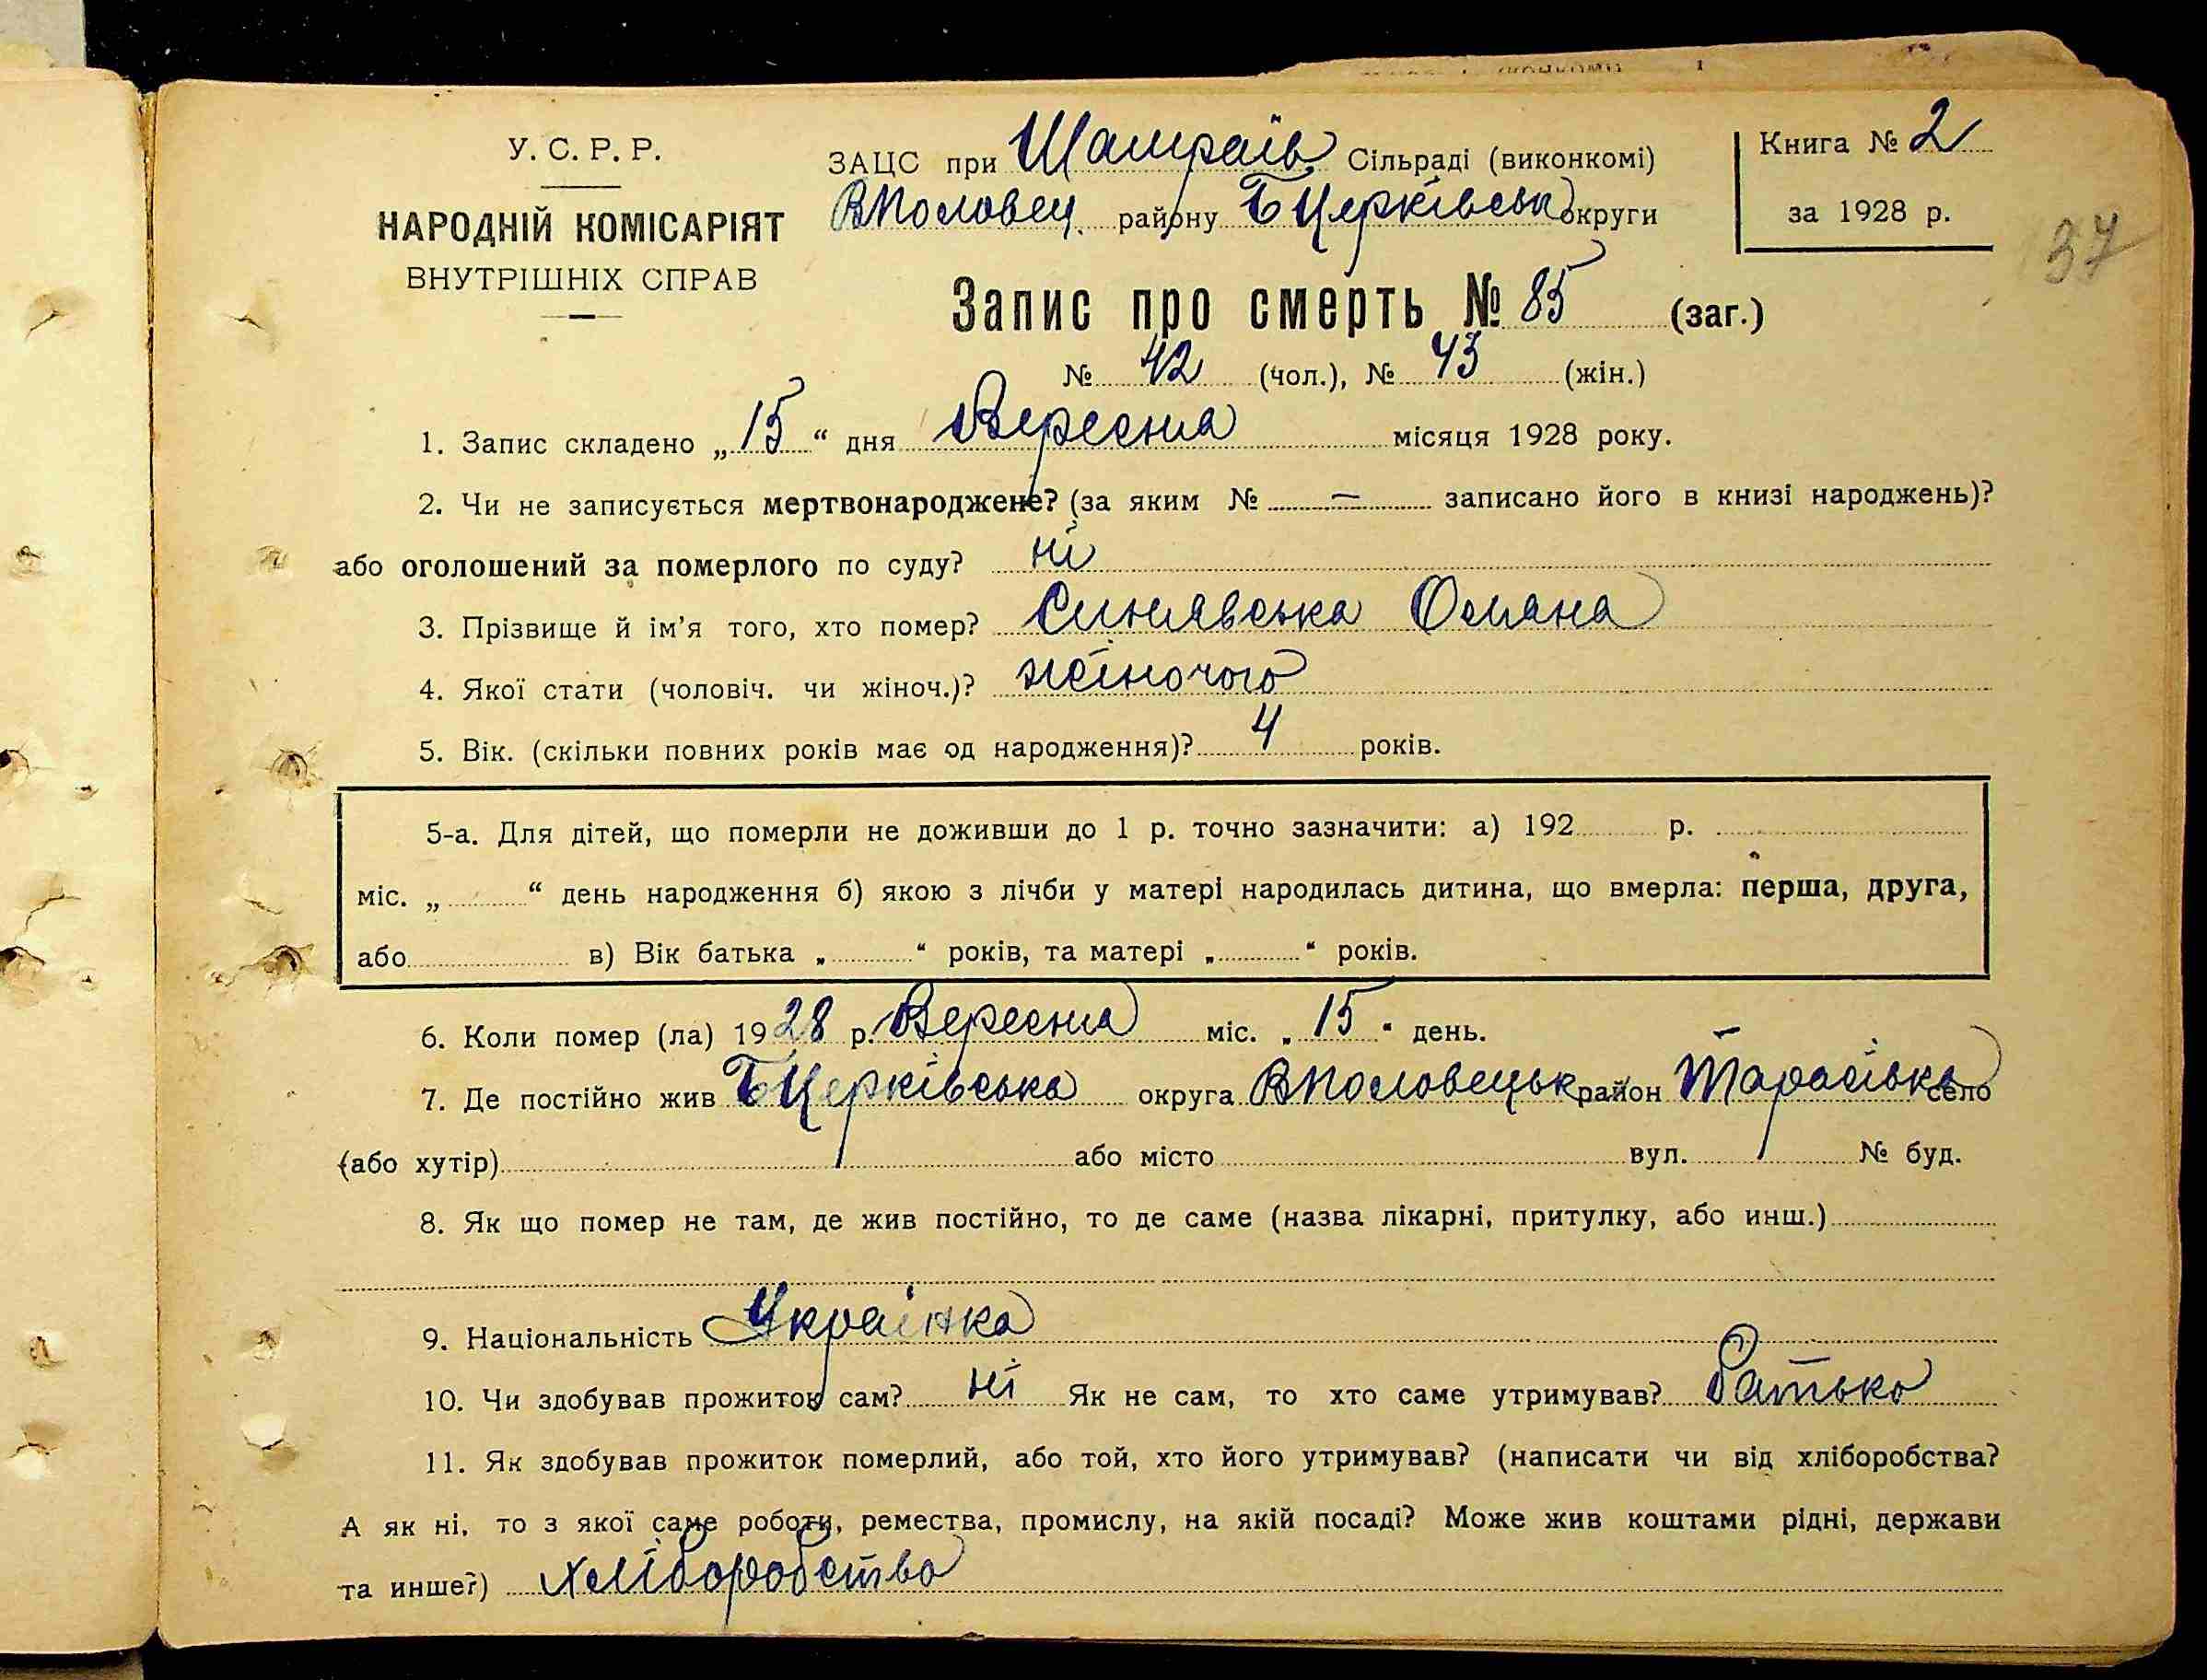 У. С. Р. Р.
НАРОДНІЙ КОМІСАРІЯТ
ВНУТРІШНІХ СПРАВ
ЗАЦС при Шамраїв Сільраді (виконкомі)
ВПоловец. району БЦерківськ округи
Книга № 2
за 1928 р.
37
Запис про смерть № 85 (заг.)
№ 42 (чол.), № 43 (жін.)
1. Запис складено „ 15 “ дня Вересня місяця 1928 року.
2. Чи не записується мертвонароджене? (за яким № — записано його в книзі народжень)?
або оголошений за померлого по суду? ні
3. Прізвище й ім'я того, хто помер? Синявська Оляна
4. Якої стати (чоловіч. чи жіноч.)? жіночого
5. Вік. (скільки повних років має од народження)? 4 років.
5-а. Для дітей, що померли не доживши до 1 р. точно зазначити: а) 192 р.
міс. „ “ день народження б) якою з лічби у матері народилась дитина, що вмерла: перша, друга,
або в) Вік батька „ “ років, та матері „ “ років.
6. Коли помер (ла) 1928 р. Вересня міс. „ 15 “ день.
7. Де постійно жив БЦерківська округа ВПоловецьк район Тарасівка село
(або хутір) або місто вул. № буд.
8. Як що помер не там, де жив постійно, то де саме (назва лікарні, притулку, або инш.)
9. Національність Українка
10. Чи здобував прожиток сам? ні Як не сам, то хто саме утримував? Батько
11. Як здобував прожиток померлий, або той, хто його утримував? (написати чи від хліборобства?
А як ні, то з якої саме роботи, ремества, промислу, на якій посаді? Може жив коштами рідні, держави
та инше?) хліборобство